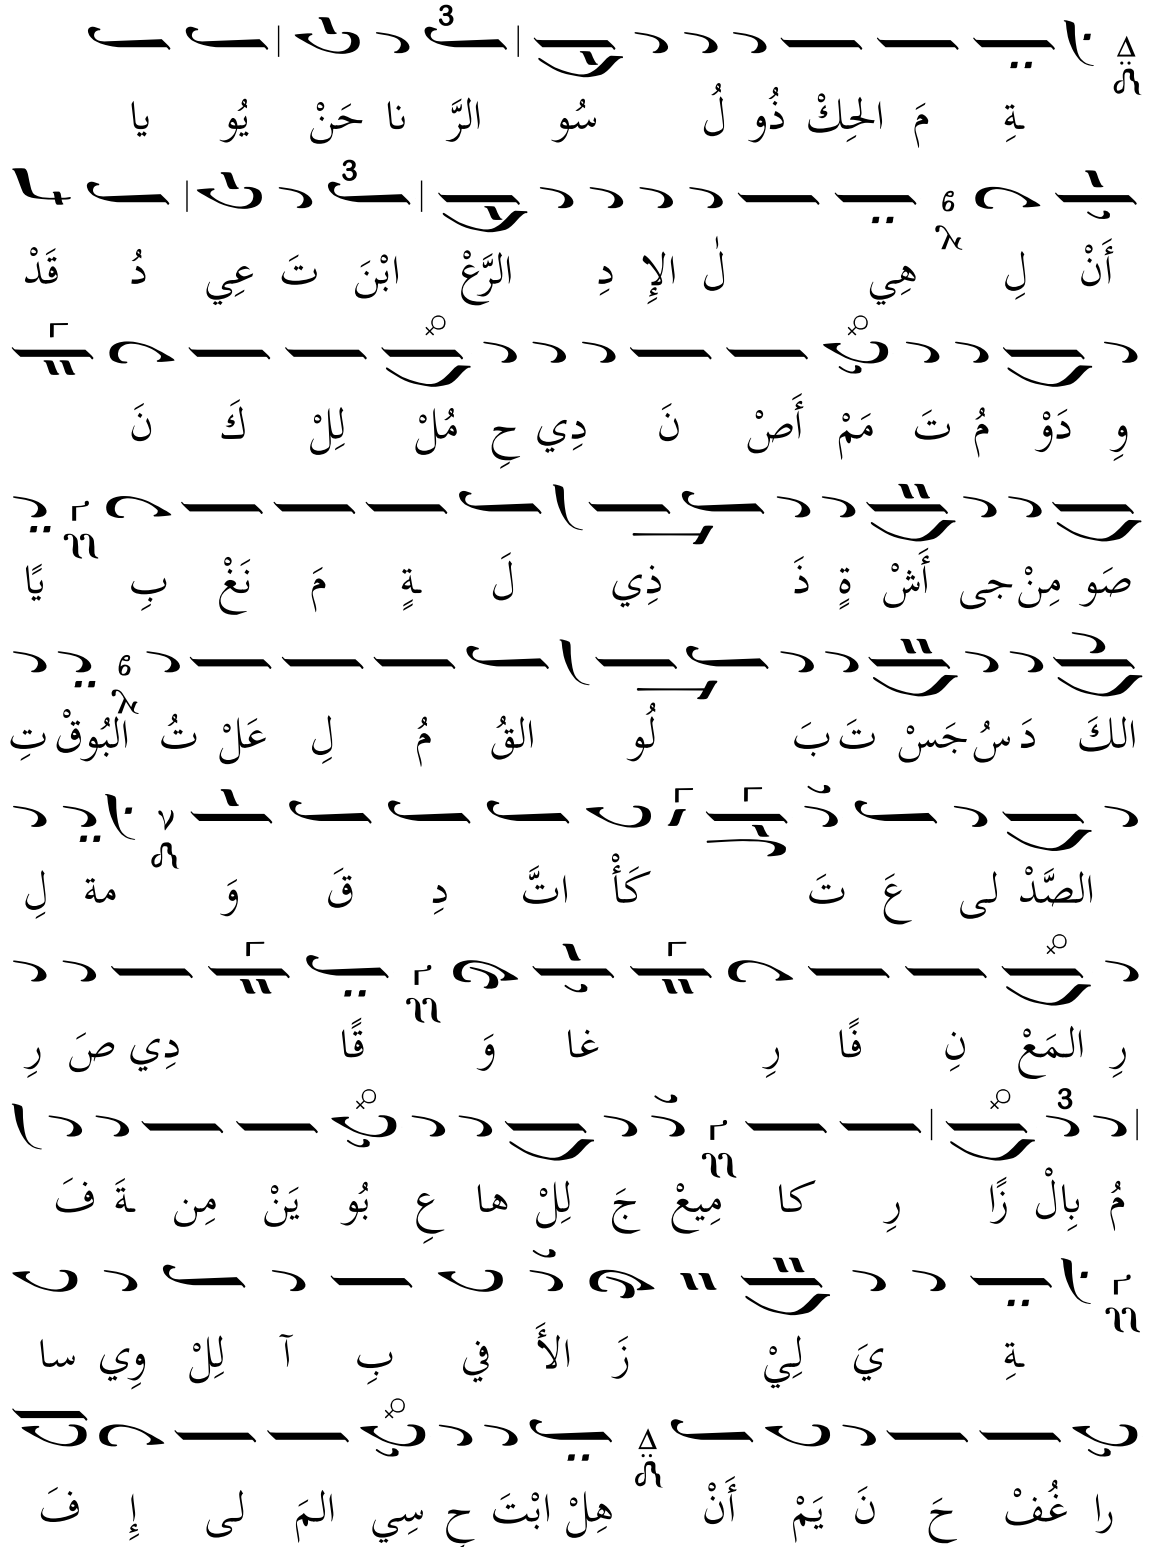 يا يُو حَنْ نا الرَّ سُو لُ ذُو الحِكْ مَ ـةِ
قَدْ دُ عِي تَ ابْنَ الرَّعْ دِ الإِ لٰ هِي لِ أَنْ
نَ كَ لِلْ مُلْ حِ دِي نَ أَصْ مَمْ تَ مُ دَوْ وِ
يًا بِ نَغْ مَ ـةٍ لَ ذِي ذَ ةٍ أَشْ جى مِنْ صَو
تِ البُوقْ تُ عَلْ لِ مُ القُ لُو بَ تَ جَسْ سُ دَ الكَ
لِ مة وَ قَ دِ اتَّ كَأْ تَ عَ لى الصَّدْ
رِ صَ دِي قًا وَ غا رِ فًا نِ المَعْ رِ
فَ ـةَ مِن يَنْ بُو عِ ها لِلْ جَ مِيعْ رِ كا زًا بِالْ مُ
سا وِي لِلْ آ بِ في الأَ زَ لِيْ يَ ـةِ
فَ إِ لى المَ سِي حِ ابْتَ هِلْ أَنْ يَمْ نَ حَ غُفْ را